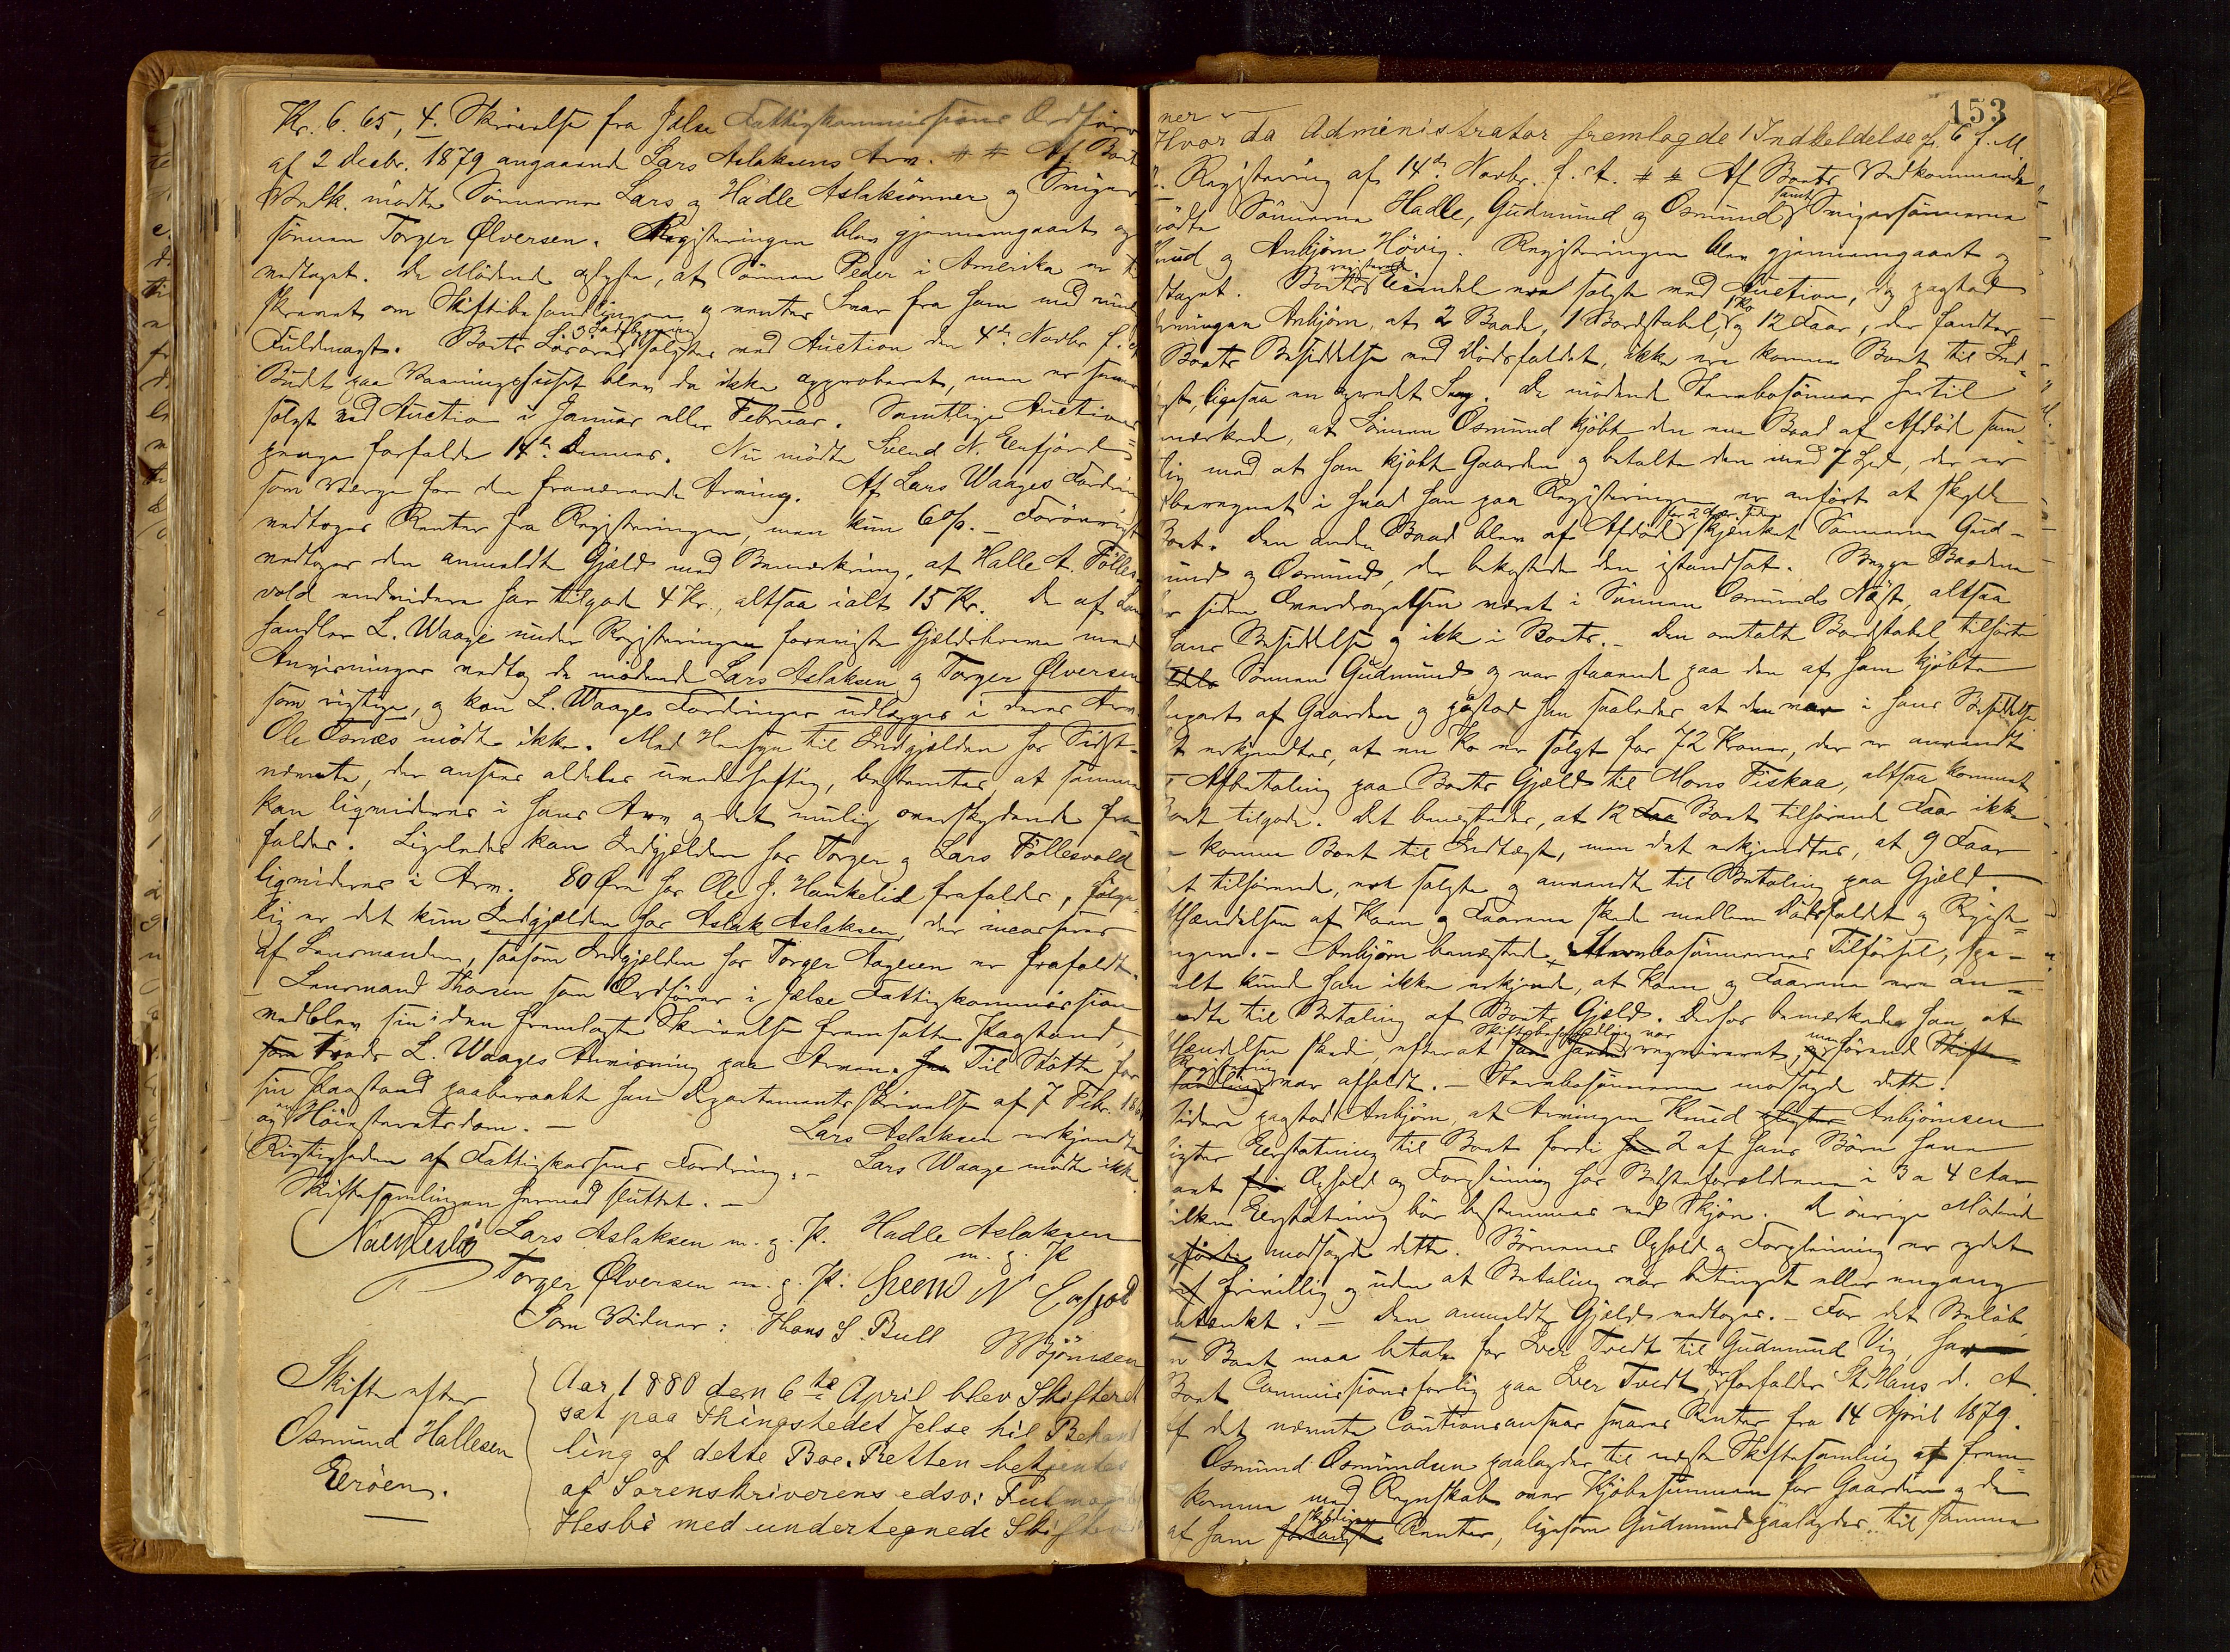 Kr. 6.65, 4. Skrivelse fra Jelse Fattigkommissions Ordfører
af 2 Decbr. 1879 angaaende Lars Aslaksens Arv. ## Af Boets
Vedk. mødte Sønnerne Lars og Hadle Aslaksønner og Sviger-
sønnen Torger Ølversen. Registeringen blev gjennemgaaet og
vedtaget. De Mødende oplyste, at Sønnen Peder i Amerika er til-
skrevet om Skiftebehandlingen og venter Svar fra ham med
Fuldmagt. Boets Løsøre solgtes ved Auction den 4de Novbr. f. A.
Budt paa Vaaningshuset blev da ikke approberet, men er senere
solgt ved Auction i Januar eller Februar. Samtlige Auctions-
penge forfalder 14de dennes. Nu mødte Svend N. Eenfjord
som Værge for den fraværende Arving. Af Lars Waages Fordring
vedtoges Renter fra Registeringen, men kun 6 o/o. – Forøvrigt
vedtoges den anmeldte Gjæld med Bemærkning, at Halle A. Følles-
vold endvidere har tilgode 4 Kr., altsaa ialt 15 Kr. De af Land-
handler L. Waage under Registeringen foreviste Gjældsbreve med
Anvisninger vedtog de mødende Lars Aslaksen og Torger Ølversen
som rigtige, og kan L. Waages Fordringer udlægges i deres Arv.
Ole Osnæs mødte ikke. Med Hensyn til Indgjælden hos Sidst-
nævnte, der ansees aldeles uvederheftig, bestemtes, at samme
kan liqvideres i hans Arv og det mulig overskydende fra-
falder. Ligeledes kan Indgjælden hos Torger og Lars Føllesvold
liqvideres i Arv. 80 Øre hos Ole J. Haukelid frafalder, følge-
lig er det kun Indgjælden hos Aslak Aslaksen, der incasseres
af Lensmanden, saasom Indgjælden hos Torger Aagesen er frafaldt.
Lensmand Thorsen som Ordfører i Jelse Fattigkommission
vedblev sin i den fremlagte Skrivelse fremsatte Paastand,
trods L. Waages Anvisning paa Arven. Til Støtte for
sin Paastand paaberaabte han Departementsskrivelse af 7 Febr.
og en Høiesteretsdom. – Lars Aslaksen erkjendte
Rigtigheden af Fattigkassens Fordring. – Lars Waage mødte ikke.
Skiftesamlingen hermed sluttet. –
Lars Aslaksen m. p. P. Hadle Aslaksen
m. p. P
Torger Ølversen m. p. P. Svend N Enfjod
Som Vidner: Hans S. Bull Bjørnsen
Skifte efter
Osmund Hallesen
Erøen.
Aar 1880 den 6te April blev Skifteret
sat paa Thingstedet Jelse til Behand
ling af dette Boe. Retten betjentes
af Sorenskriverens edsv: Fuldmægtig
Hesbø med undertegnede Skiftevid
153
ner
Hvor da Administrator fremlagde 1 Indkaldelse af 6 f. M.
2. Registering af 14de Novbr. f. A. ## Af Boets Vedkommende
mødte Sønnerne Hadle, Gudmund og Osmund samt Svigersønnerne
Knud og Anbjørn Høvig. Registeringen blev gjennemgaaet og
vedtaget. Boets registrerede Eiendele er solgte ved Auction, og paastod
Arvingen Anbjørn, at 2 Baade, 1 Bordstabel, 1 Ko og 12 Faar, der fandtes
i Boets Besiddelse ved Dødsfaldet, ikke er komne Boet til Ind-
tægt, ligesaa en opredt Seng. De mødende Stervbosønner hertil
bemærkede, at Sønnen Osmund kjøbte den ene Baad af Afdøde sam-
tidig med at han kjøbte Gaarden og betalte den med 7 Spd, der er
iberegnet i hvad han paa Registeringen er anført at skylde
Boet. Den anden Baad blev af Afdøde for 2 Aar siden skjænket Sønnerne Gud-
mund og Osmund, der bekostede den istandsat. Begge Baadene
har siden Overdragelsen været i Sønnen Osmunds Nøst, altsaa
i hans Besiddelse og ikke i Boets. – Den omtalte Bordstabel tilhørte
Sønnen Gudmund og var staaende paa den af ham kjøbte
Part af Gaarden og paastod han saaledes at den var i hans Besiddelse
Det erkjendtes, at en Ko er solgt for 72 Kroner, der er anvendt
til Afbetaling paa Boets Gjæld til Mons Fiskaa, altsaa kommet
Boet tilgode. Det benegtedes, at 12 Boet tilhørende Faar ikke
er komne Boet til Indtægt, men det erkjendtes, at 9 Faar
Boet tilhørende, er solgte og anvendte til Betaling paa Gjæld.
Afhændelsen af Koen og Faarene skede mellem Dødsfaldet og Registe-
ringen. – Anbjørn benægtede Stervbosønnernes Tilførsel, spe-
cielt kunde han ikke erkjende, at Koen og Faarene er an-
vendte til Betaling af Boets Gjæld. Derhos bemærkede han, at
Afhændelsen skede, efterat Skiftebehandling var reqvireret, men førend
Registering var afholdt. – Stervbosønnerne modsagde dette.
Videre paastod Anbjørn, at Arvingen Knud Anbjørnsen
pligter Erstatning til Boet fordi 2 af hans Børn have
havt Ophold og Forpleining hos Bedsteforældrene i 3 a 4 Aar
hvilken Erstatning bør bestemmes ved Skjøn. De øvrige Mødende
modsagde dette. Børnenes Ophold og Forpleining er ydet
frivillig og uden at Betaling var betinget eller engang
paatænkt. – Den anmeldte Gjæld vedtoges. – For det Beløb,
som Boet maa betale for Iver Tvedt til Gudmund Vig, har
Boet Commissionsforlig paa Iver Tvedt, der forfalder St. Hans d. A.
Af det nævnte Cautionsansvar svares Renter fra 14 April 1879.
Osmund Osmundsen paalagdes til næste Skiftesamling at frem-
komme med Regnskab over Kjøbesummen for Gaarden og de
af ham skyldige Renter, ligesom Gudmund paalagdes til samme